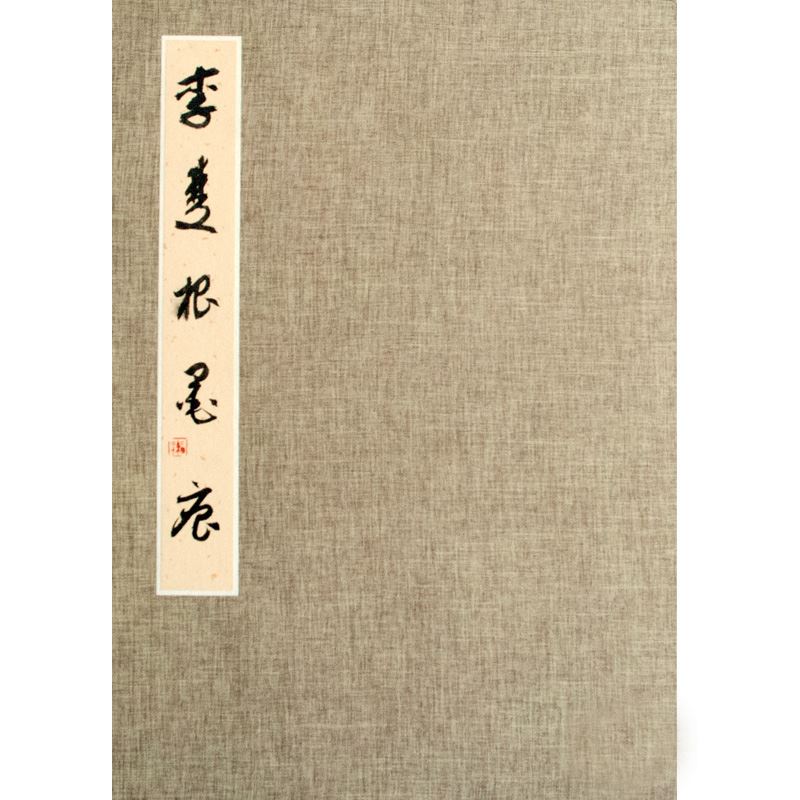 李雙根墨痕